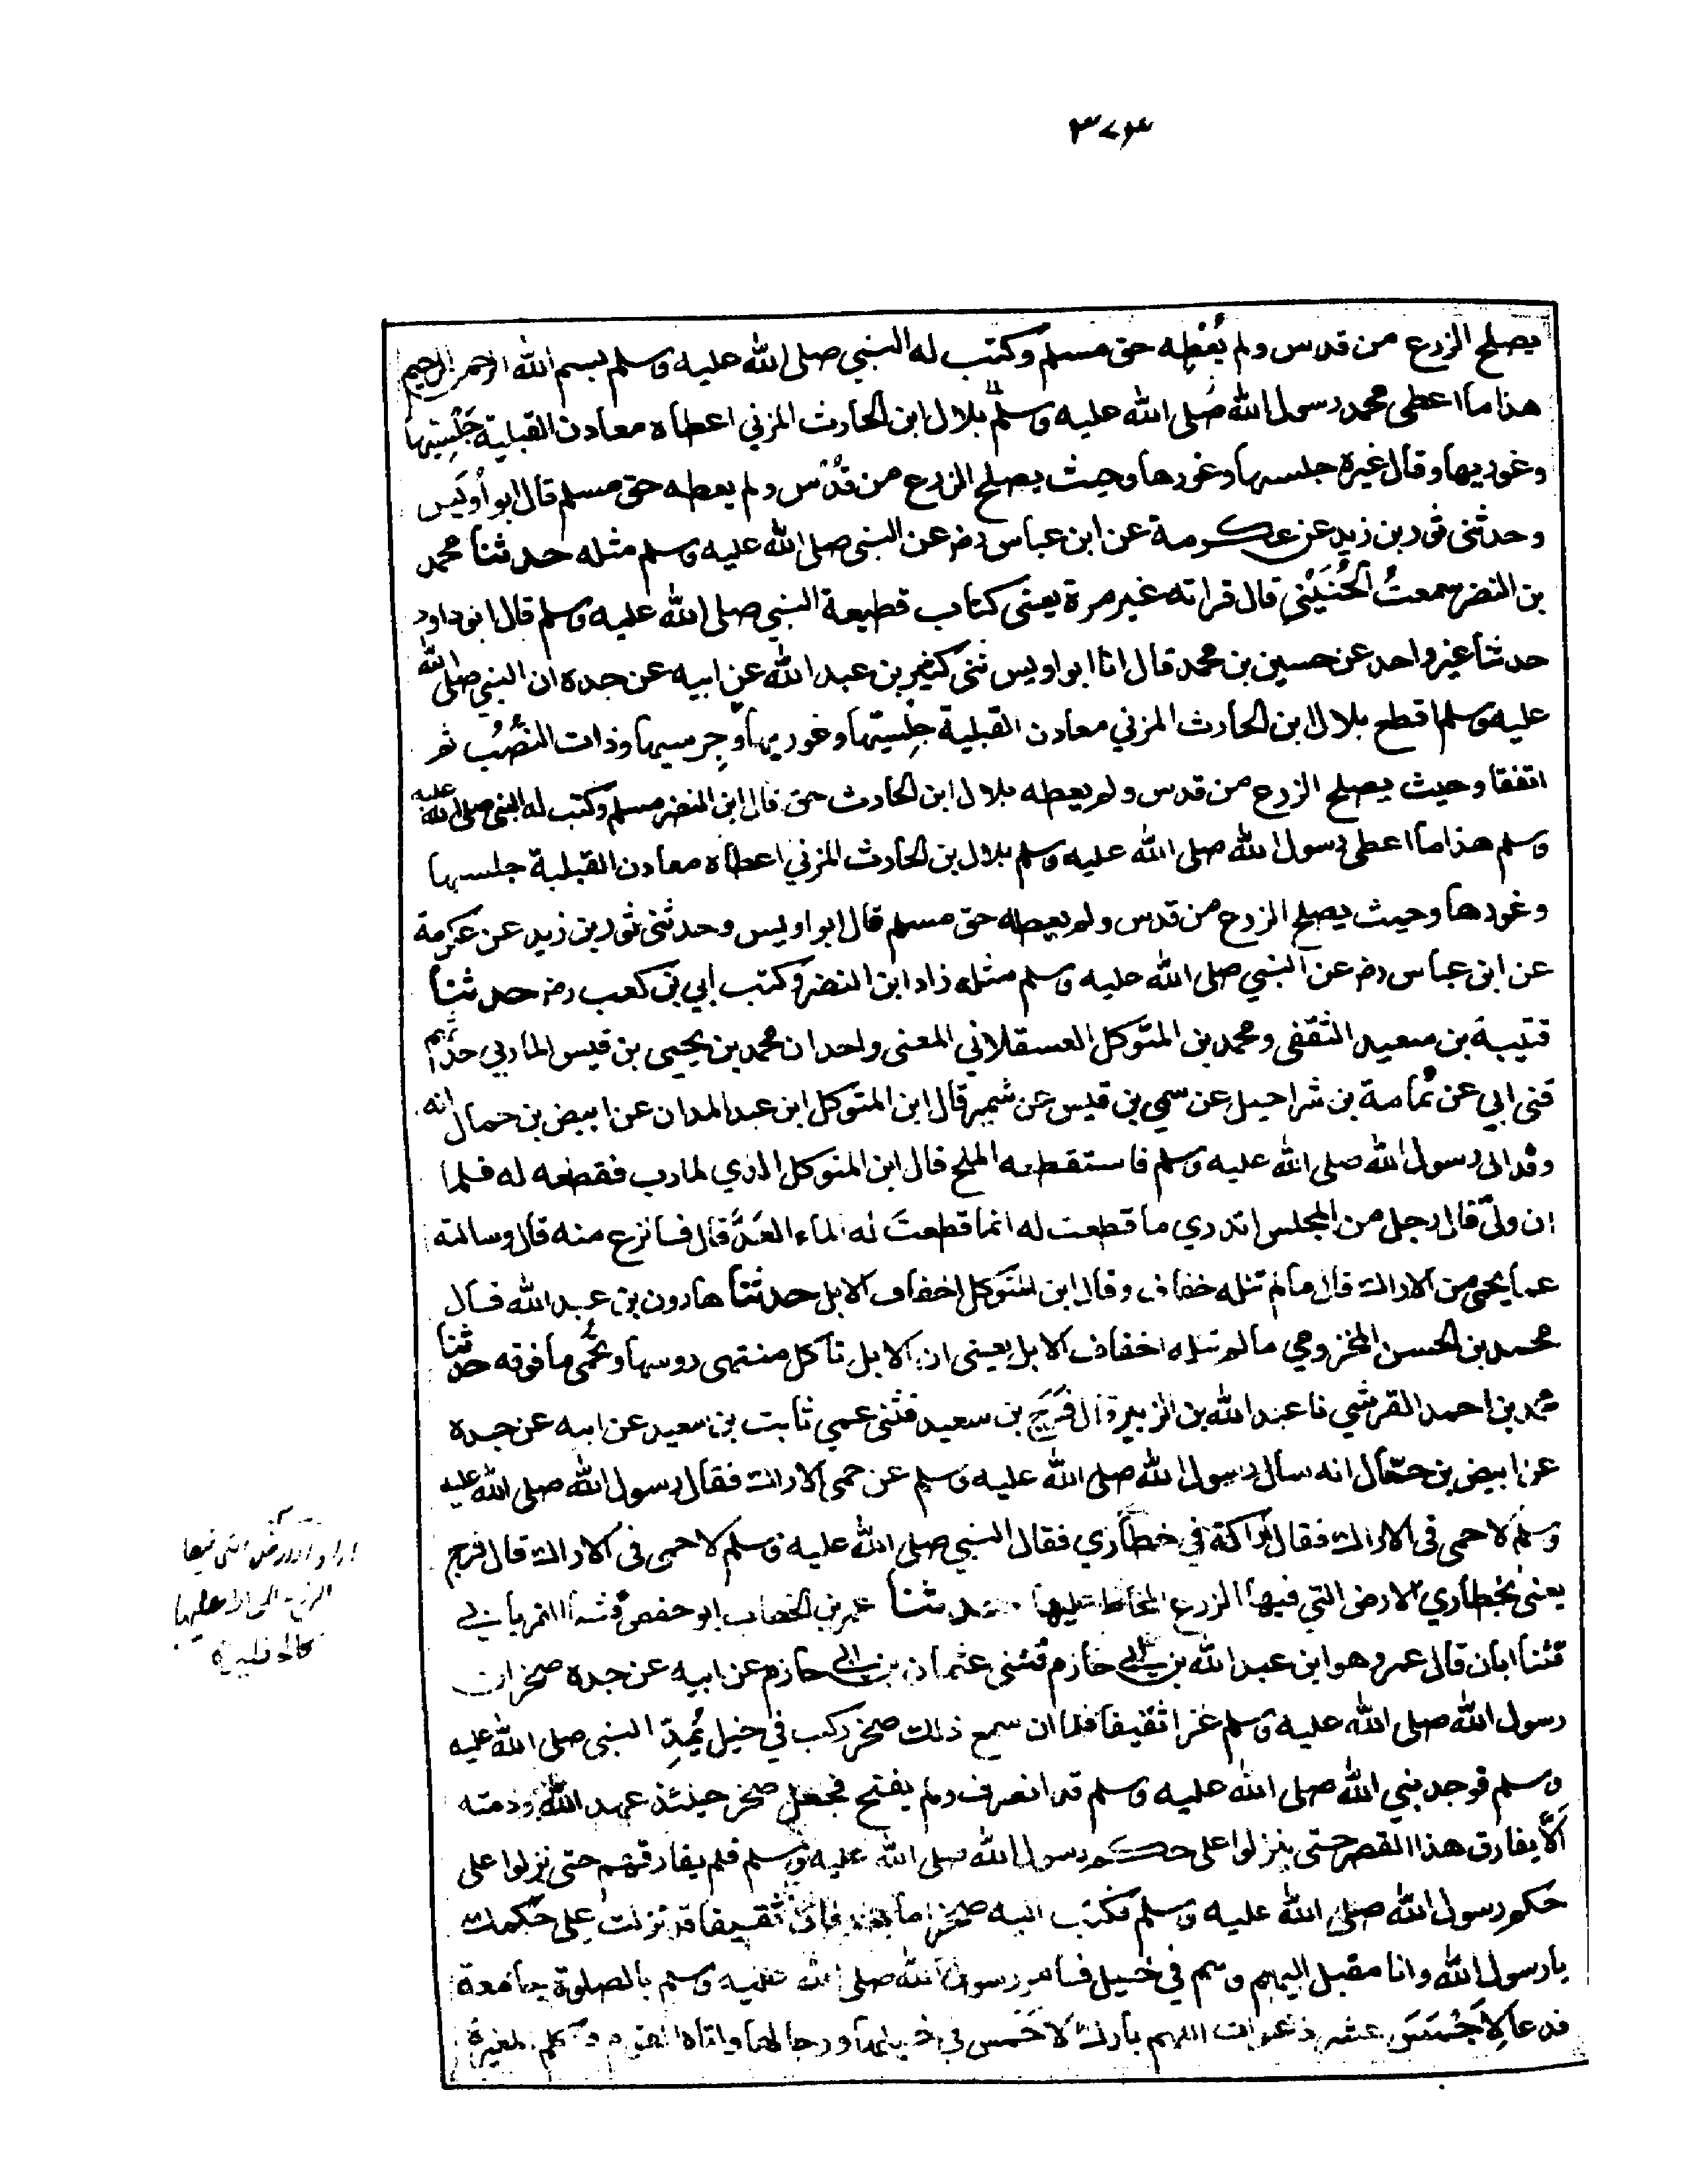 ٣٧٤
يصلح الزرع من قدس ولم يُعْطِه حق مسلم وكتب له النبي صلى الله عليه وسلم بسم الله الرحمن الرحيم
هذا ما اعطى محمد رسول الله صلى الله عليه وسلم بلال ابن الحارث المزني اعطاه معادن القبلية جَلْسِيّها
وغوريها وقال غيره جلسها وغورها وحيث يصلح الزرع من قُدْس ولم يعطه حق مسلم قال ابو أُوَيس
وحدثنى ثور بن زيد عن عكرمة عن ابن عباس رضـ عن النبي صلى الله عليه وسلم مثله حدثنا محمد
بن النضر سمعتُ الحُنَيْنيَ قال قراته غير مرة يعنى كتاب قطيعة النبي صلى الله عليه وسلم قال ابو داود
حدثنا غير واحد عن حسين بن محمد قال انا ابو اويس ثنى كثير بن عبد الله عن ابيه عن جده ان النبي صلى الله
عليه وسلم اقطع بلال ابن الحارث المزني معادن القبلية جلسيّها وغوريها وجرسيها وذات النُصُب ثم
اتفقا وحيث يصلح الزرع من قدس ولم يعطه بلال ابن الحارث حق قال ابن النضر مسلم وكتب له النبى صلى الله عليه
وسلم هذا ما اعطى رسول الله صلى الله عليه وسلم بلال بن الحارث المزني اعطاه معادن القبلية جلسها
وغورها وحيث يصلح الزرع من قدس ولم يعطه حق مسلم قال ابو اويس وحدثنى ثور بن زيد عن عكرمة
عن ابن عباس رضـ عن النبي صلى الله عليه وسلم مثله زاد ابن النضر وكتب أبي بن كعب رضـ حدثنا
قتيبة بن سعيد الثقفي ومحمد بن المتوكل العسقلاني المعنى واحد ان محمد بن يحيى بن قيس الماربي حدثهم
قثنى ابي عن ثُمامة بن شراحيل عن سمي بن قيس عن شمير قال ابن المتوكل ابن عبد المدان عن ابيض بن حمال انه
وفد الى رسول الله صلى الله عليه وسلم فاستقطعه الملح قال ابن المتوكل الذي بمارب فقطعه له فلما
ان ولّى قال رجل من المجلس اتدري ما قطعت له انما قطعتَ له الماء العِدَّ قال فانزع منه قال وسالته
عما يحمى من الاراك قال ما لم تنله خفاف وقال ابن المتوكل اخفاف الابل حدثنا هارون بن عبد الله قال
محمد بن الحسن المخزومي ما لم تنله اخفاف الابل يعنى ان الابل تاكل منتهى روسها ويُحْمى ما فوقه حدثنا
محمد بن احمد القرشي نا عبد الله بن الزبير قال فَرَج بن سعيد قثنى عمي ثابت بن سعيد عن ابيه عن جده
عن ابيض بن حمّال انه سال رسول الله صلى الله عليه وسلم عن حمى الاراك فقال رسول الله صلى الله عليه
وسلم لا حمى فى الاراك فقال اراكة في حظاري فقال النبي صلى الله عليه وسلم لا حمى فى الاراك قال فرج
يعنى بحظاري الارض التي فيها الزرع المحاط عليها حدثنا عمر بن الخطاب ابو حفص قثنا الفريابي
قثنا ابان قال عمر وهو ابن عبد الله بن ابي حازم قثنى عثمان بن ابي حازم عن ابيه عن جده صخر ان
رسول الله صلى الله عليه وسلم غزا ثقيفا فلما ان سمع ذلك صخر ركب في خيل يُمِدّ النبى صلى الله عليه
وسلم فوجد نبي الله صلى الله عليه وسلم قد انصرف ولم يفتح فجعل صخر حينئذ عهد الله وذمته
ألّا يفارق هذا القصر حتى ينزلوا على حكم رسول الله صلى الله عليه وسلم فلم يفارقهم حتى نزلوا على
حكم رسول الله صلى الله عليه وسلم فكتب اليه صخر اما بعد فان ثقيفا قد نزلت على حكمك
يا رسول الله وانا مقبل اليهم وهم في خيل فامر رسول الله صلى الله عليه وسلم بالصلوة جامعة
فدعا لِأَحْمَسَ عشر دعوات اللهم بارك لاحمس في خيلها ورجالها واتاه القوم فتكلم المغيرة
الارض التى فيها
الزرع المحاط عليها